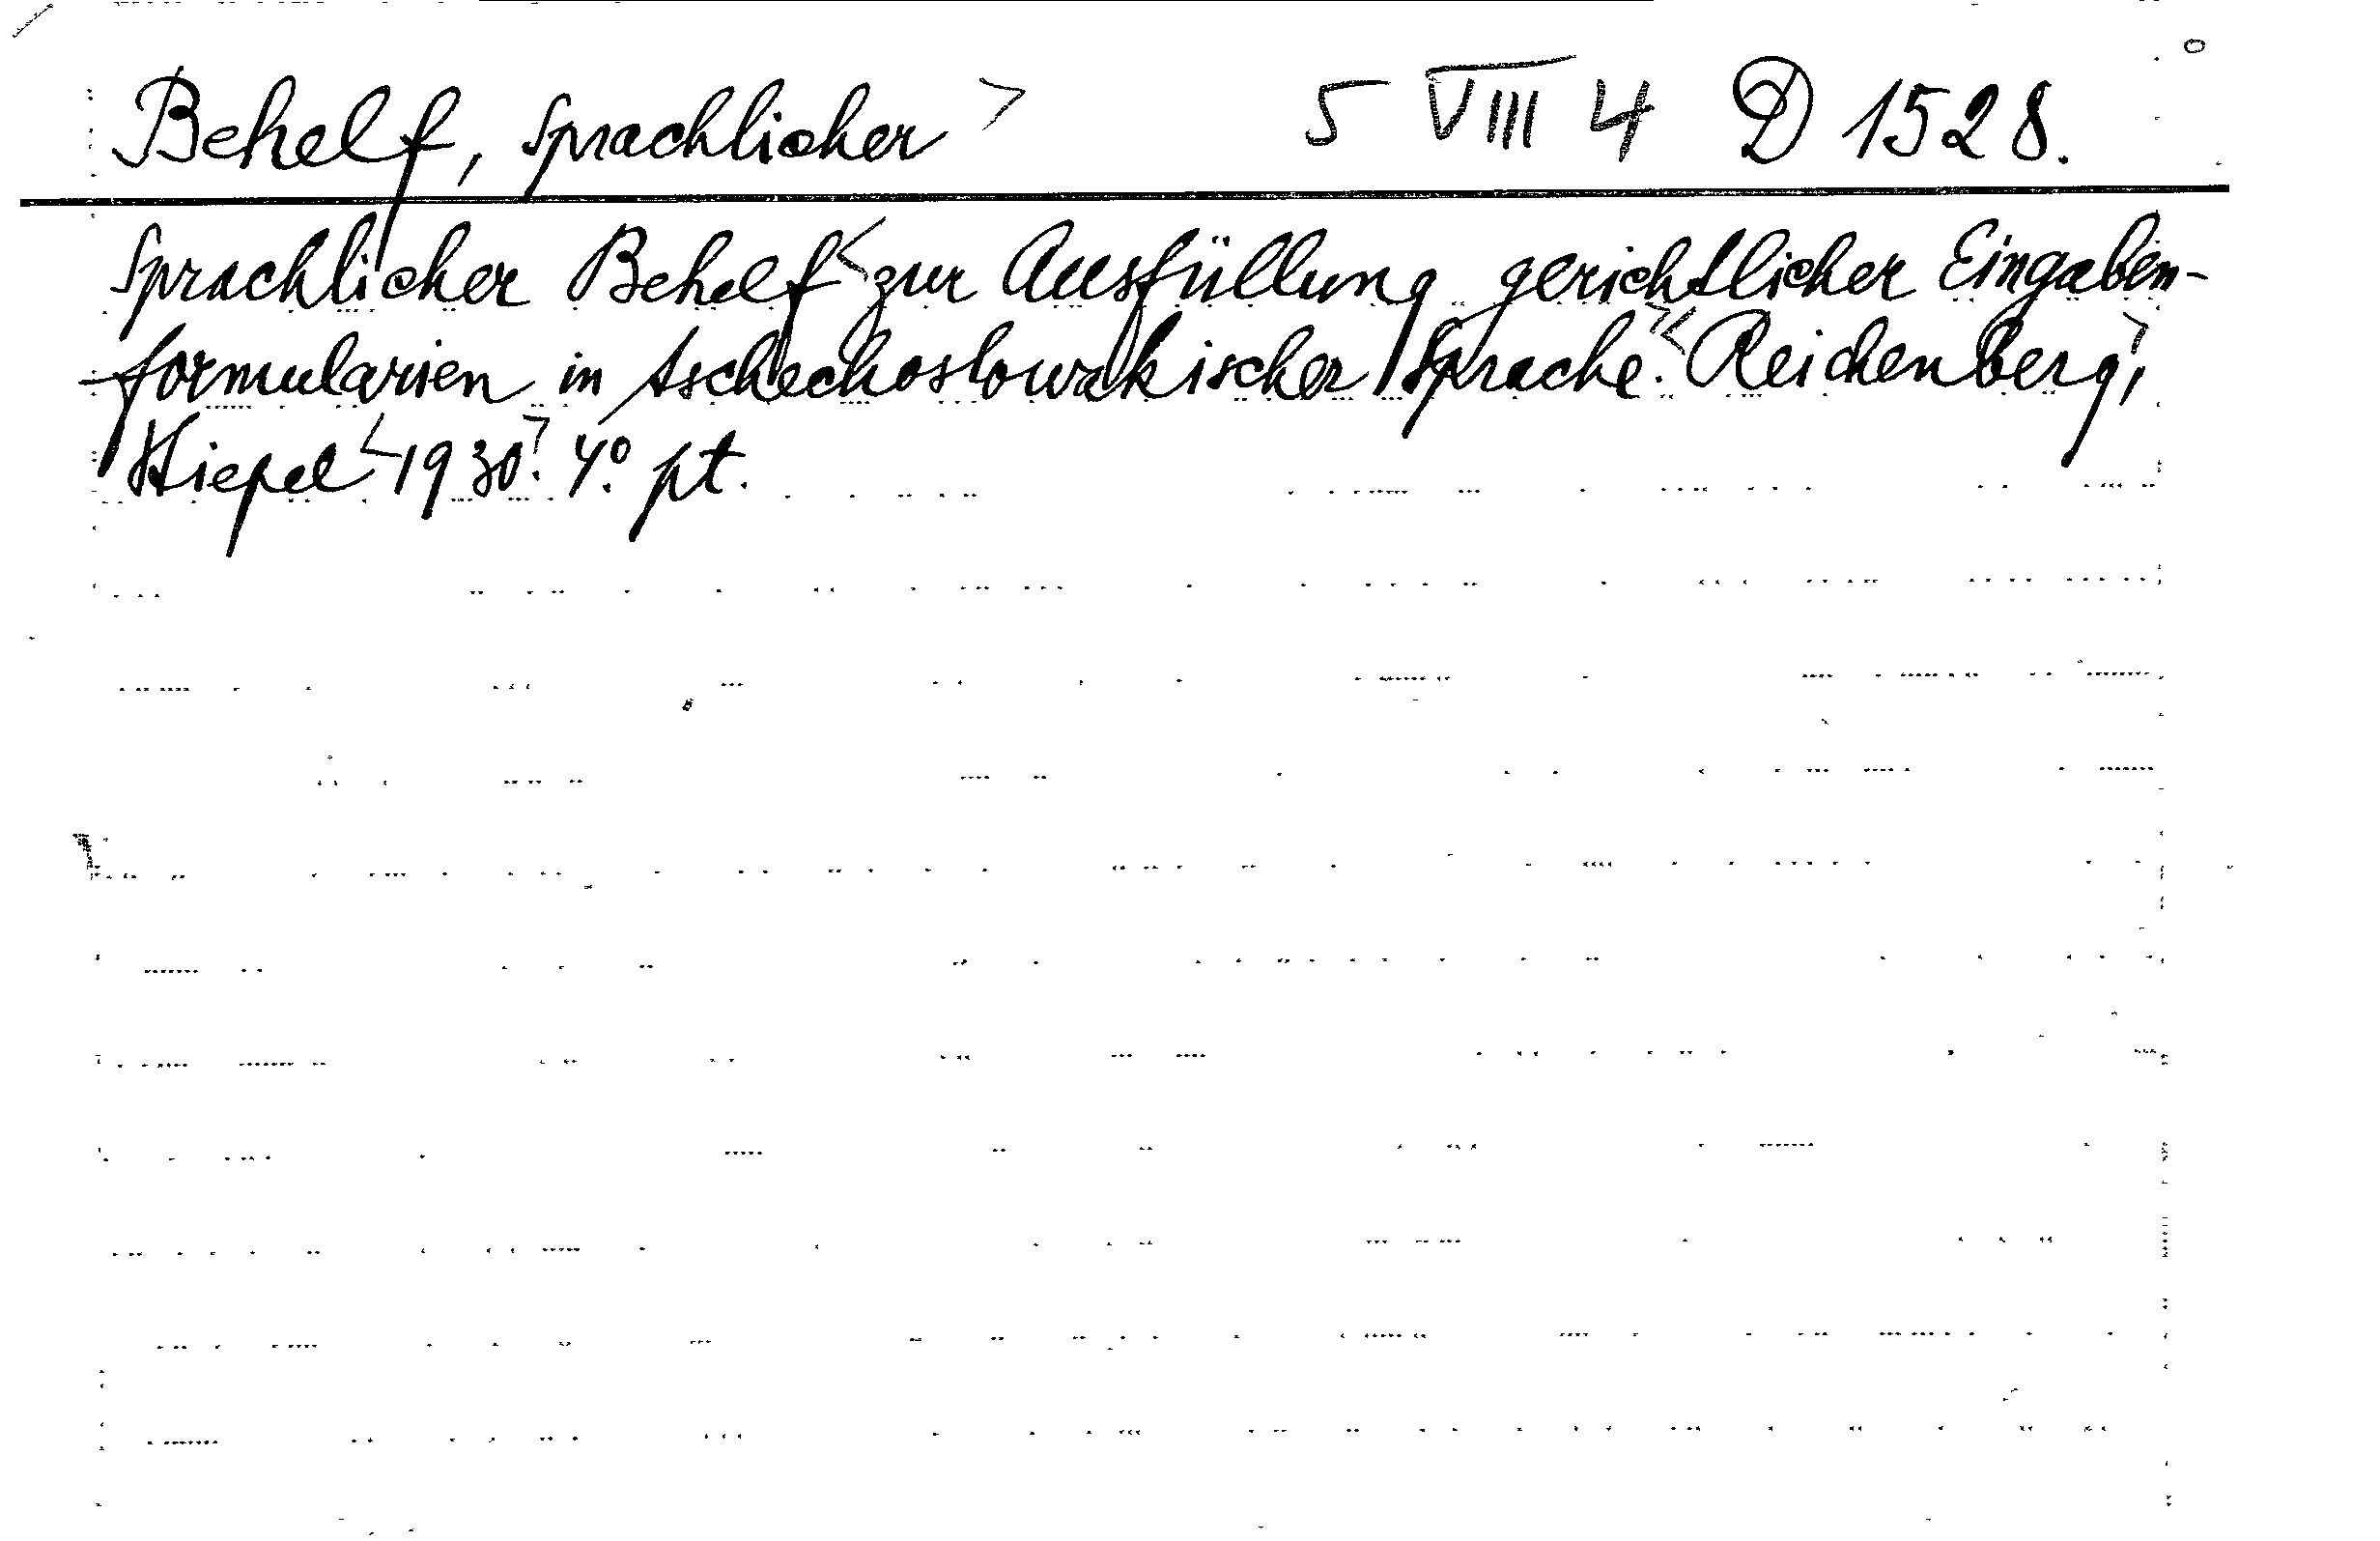 Behelf, sprachlicher > 5 VIII 4 D 1528.
Sprachlicher Behelf < zur Ausfüllung gerichtlicher Eingaben-
formularien in tschechoslowakischer Sprache. >< Reichenberg, >
Stiepel < 1930. > 4°. pt.